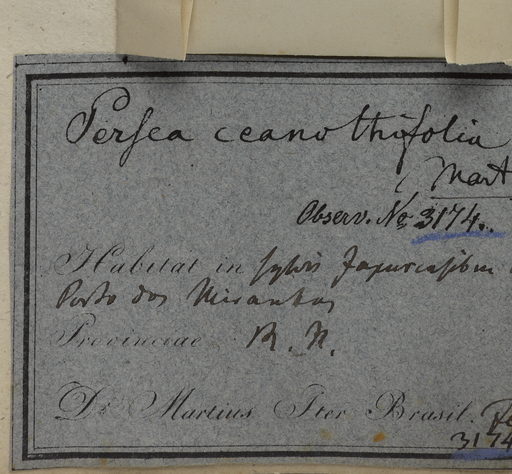 Persea ceanothifolia
Mart
Observ. No 3174.
Habitat in sylvis Japurensibus
Porto dos Miranhas
Provinciae R. N.
Dr. Martius Iter Brasil.
3174